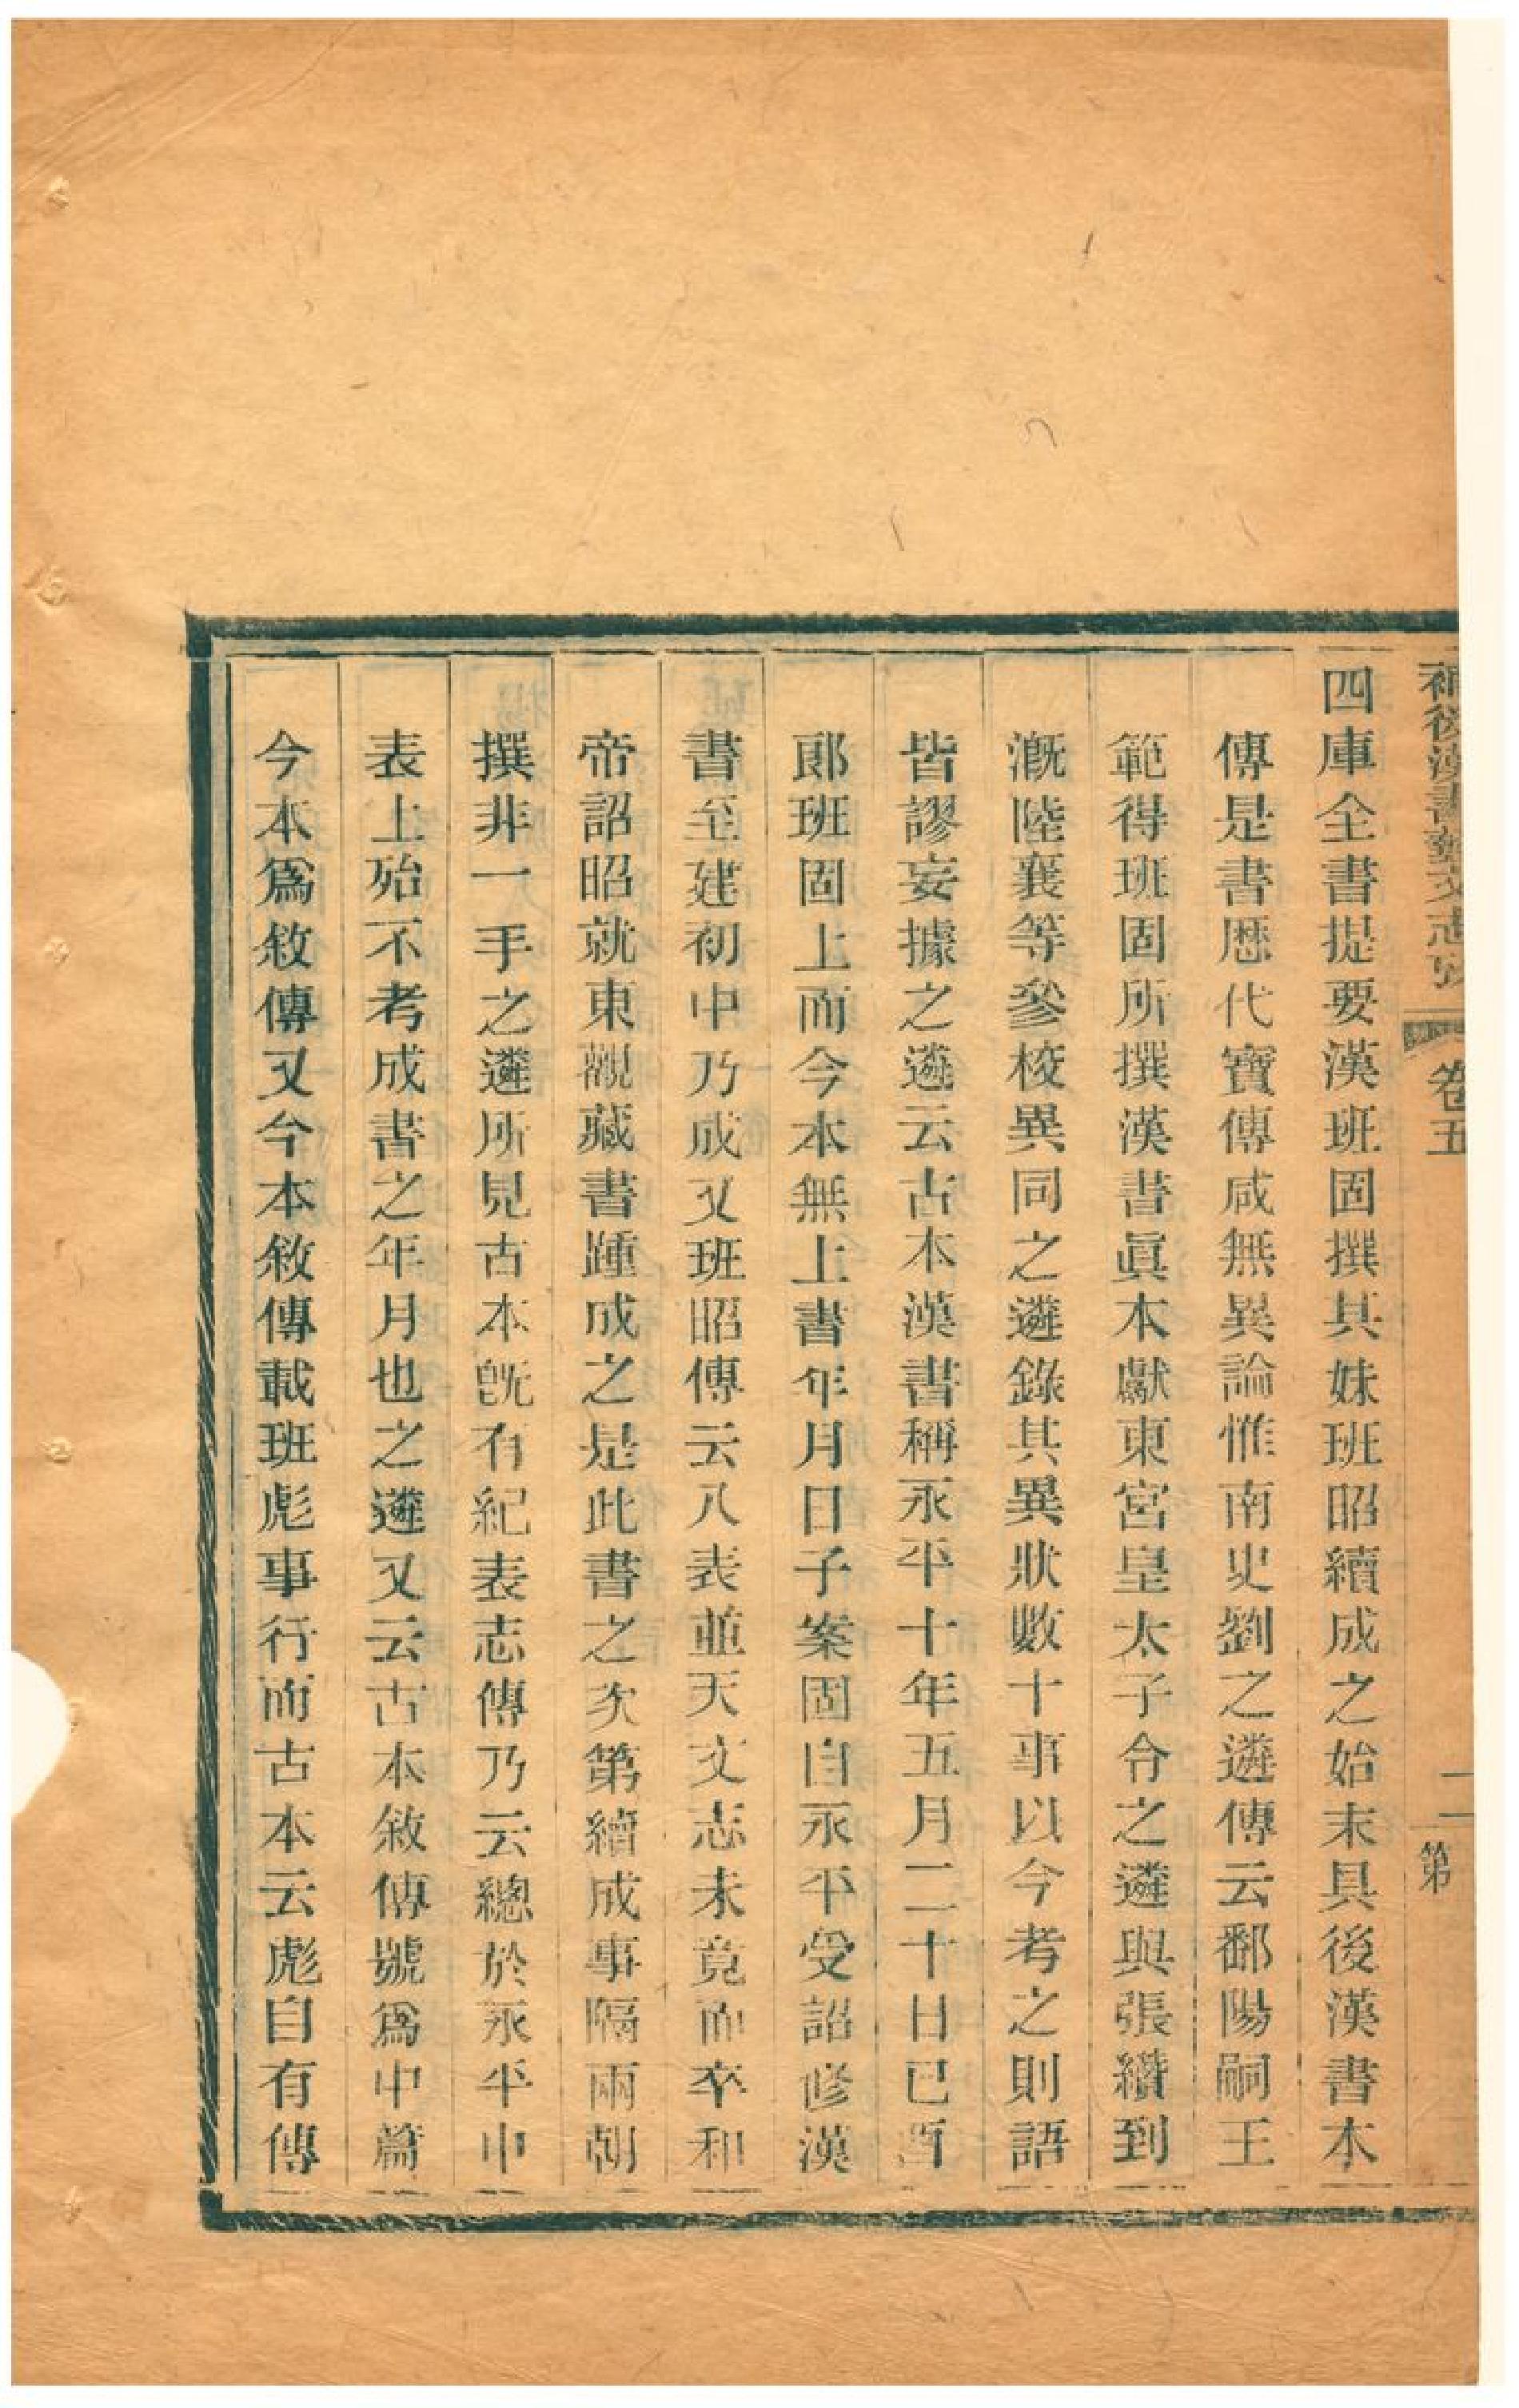 補後漢書藝文志攷
卷五
二
第
四庫全書提要漢班固撰其妹班昭續成之始末具後漢書本
傳是書歷代寶傳咸無異論惟南史劉之遴傳云鄱陽嗣王
範得班固所撰漢書眞本獻東宮皇太子令之遴與張纘到
溉陸襄等參校異同之遴錄其異狀數十事以今考之則語
皆謬妄據之遴云古本漢書稱永平十年五月二十日己酉
郎班固上而今本無上書年月日子案固自永平受詔修漢
書至建初中乃成又班昭傳云八表並天文志未竟而卒和
帝詔昭就東觀藏書踵成之是此書之次第續成事隔兩朝
撰非一手之遴所見古本旣有紀表志傳乃云總於永平中
表上殆不考成書之年月也之遴又云古本敘傳號爲中篇
今本爲敘傳又今本敘傳載班彪事行而古本云彪自有傳